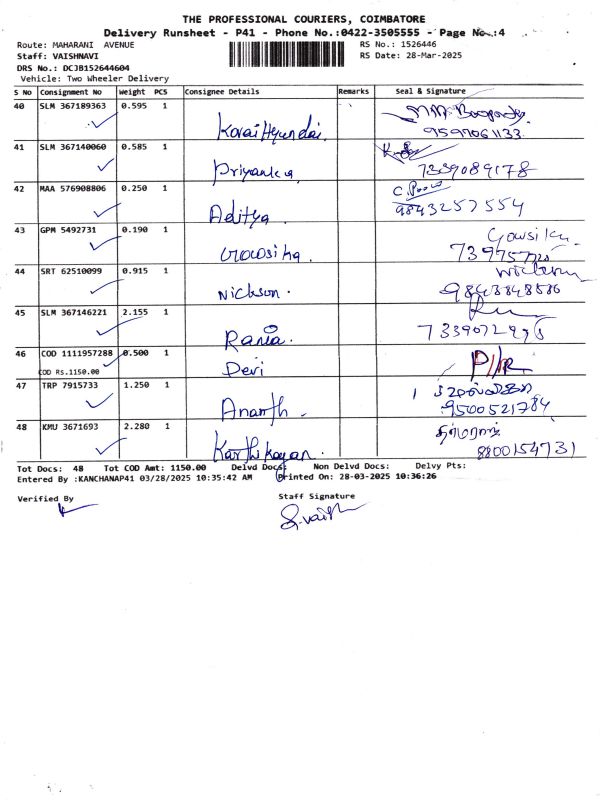 THE PROFESSIONAL COURIERS, COIMBATORE
Delivery Runsheet - P41 - Phone No.:0422-3505555 - Page No.:4
Route: MAHARANI AVENUE
RS No.: 1526446
Staff: VAISHNAVI
RS Date: 28-Mar-2025
DRS No.: DCJB152644604
Vehicle: Two Wheeler Delivery
S No Consignment No Weight PCS Consignee Details Remarks Seal & Signature
40 SLM 367189363 0.595 1
Kovai Hyundai
9597061133
41 SLM 367140060 0.585 1
Priyanka
7339089178
42 MAA 576908806 0.250 1
Aditya
9843257554
43 GPM 5492731 0.190 1
Gowsika
Gowsika
44 SRT 62510099 0.915 1
Nickson
9843848586
45 SLM 367146221 2.155 1
Rania
46 COD 1111957288 0.500 1
COD RS.1150.00
Devi
47 TRP 7915733 1.250 1
Ananth
9500521784
48 KMU 3671693 2.280 1
தர்மராஜ்
Karthikayan
8800154731
Tot Docs: 48 Tot COD Amt: 1150.00 Delvd Docs: Non Delvd Docs: Delvy Pts:
Entered By :KANCHANAP41 03/28/2025 10:35:42 AM Printed On: 28-03-2025 10:36:26
Verified By
Staff Signature